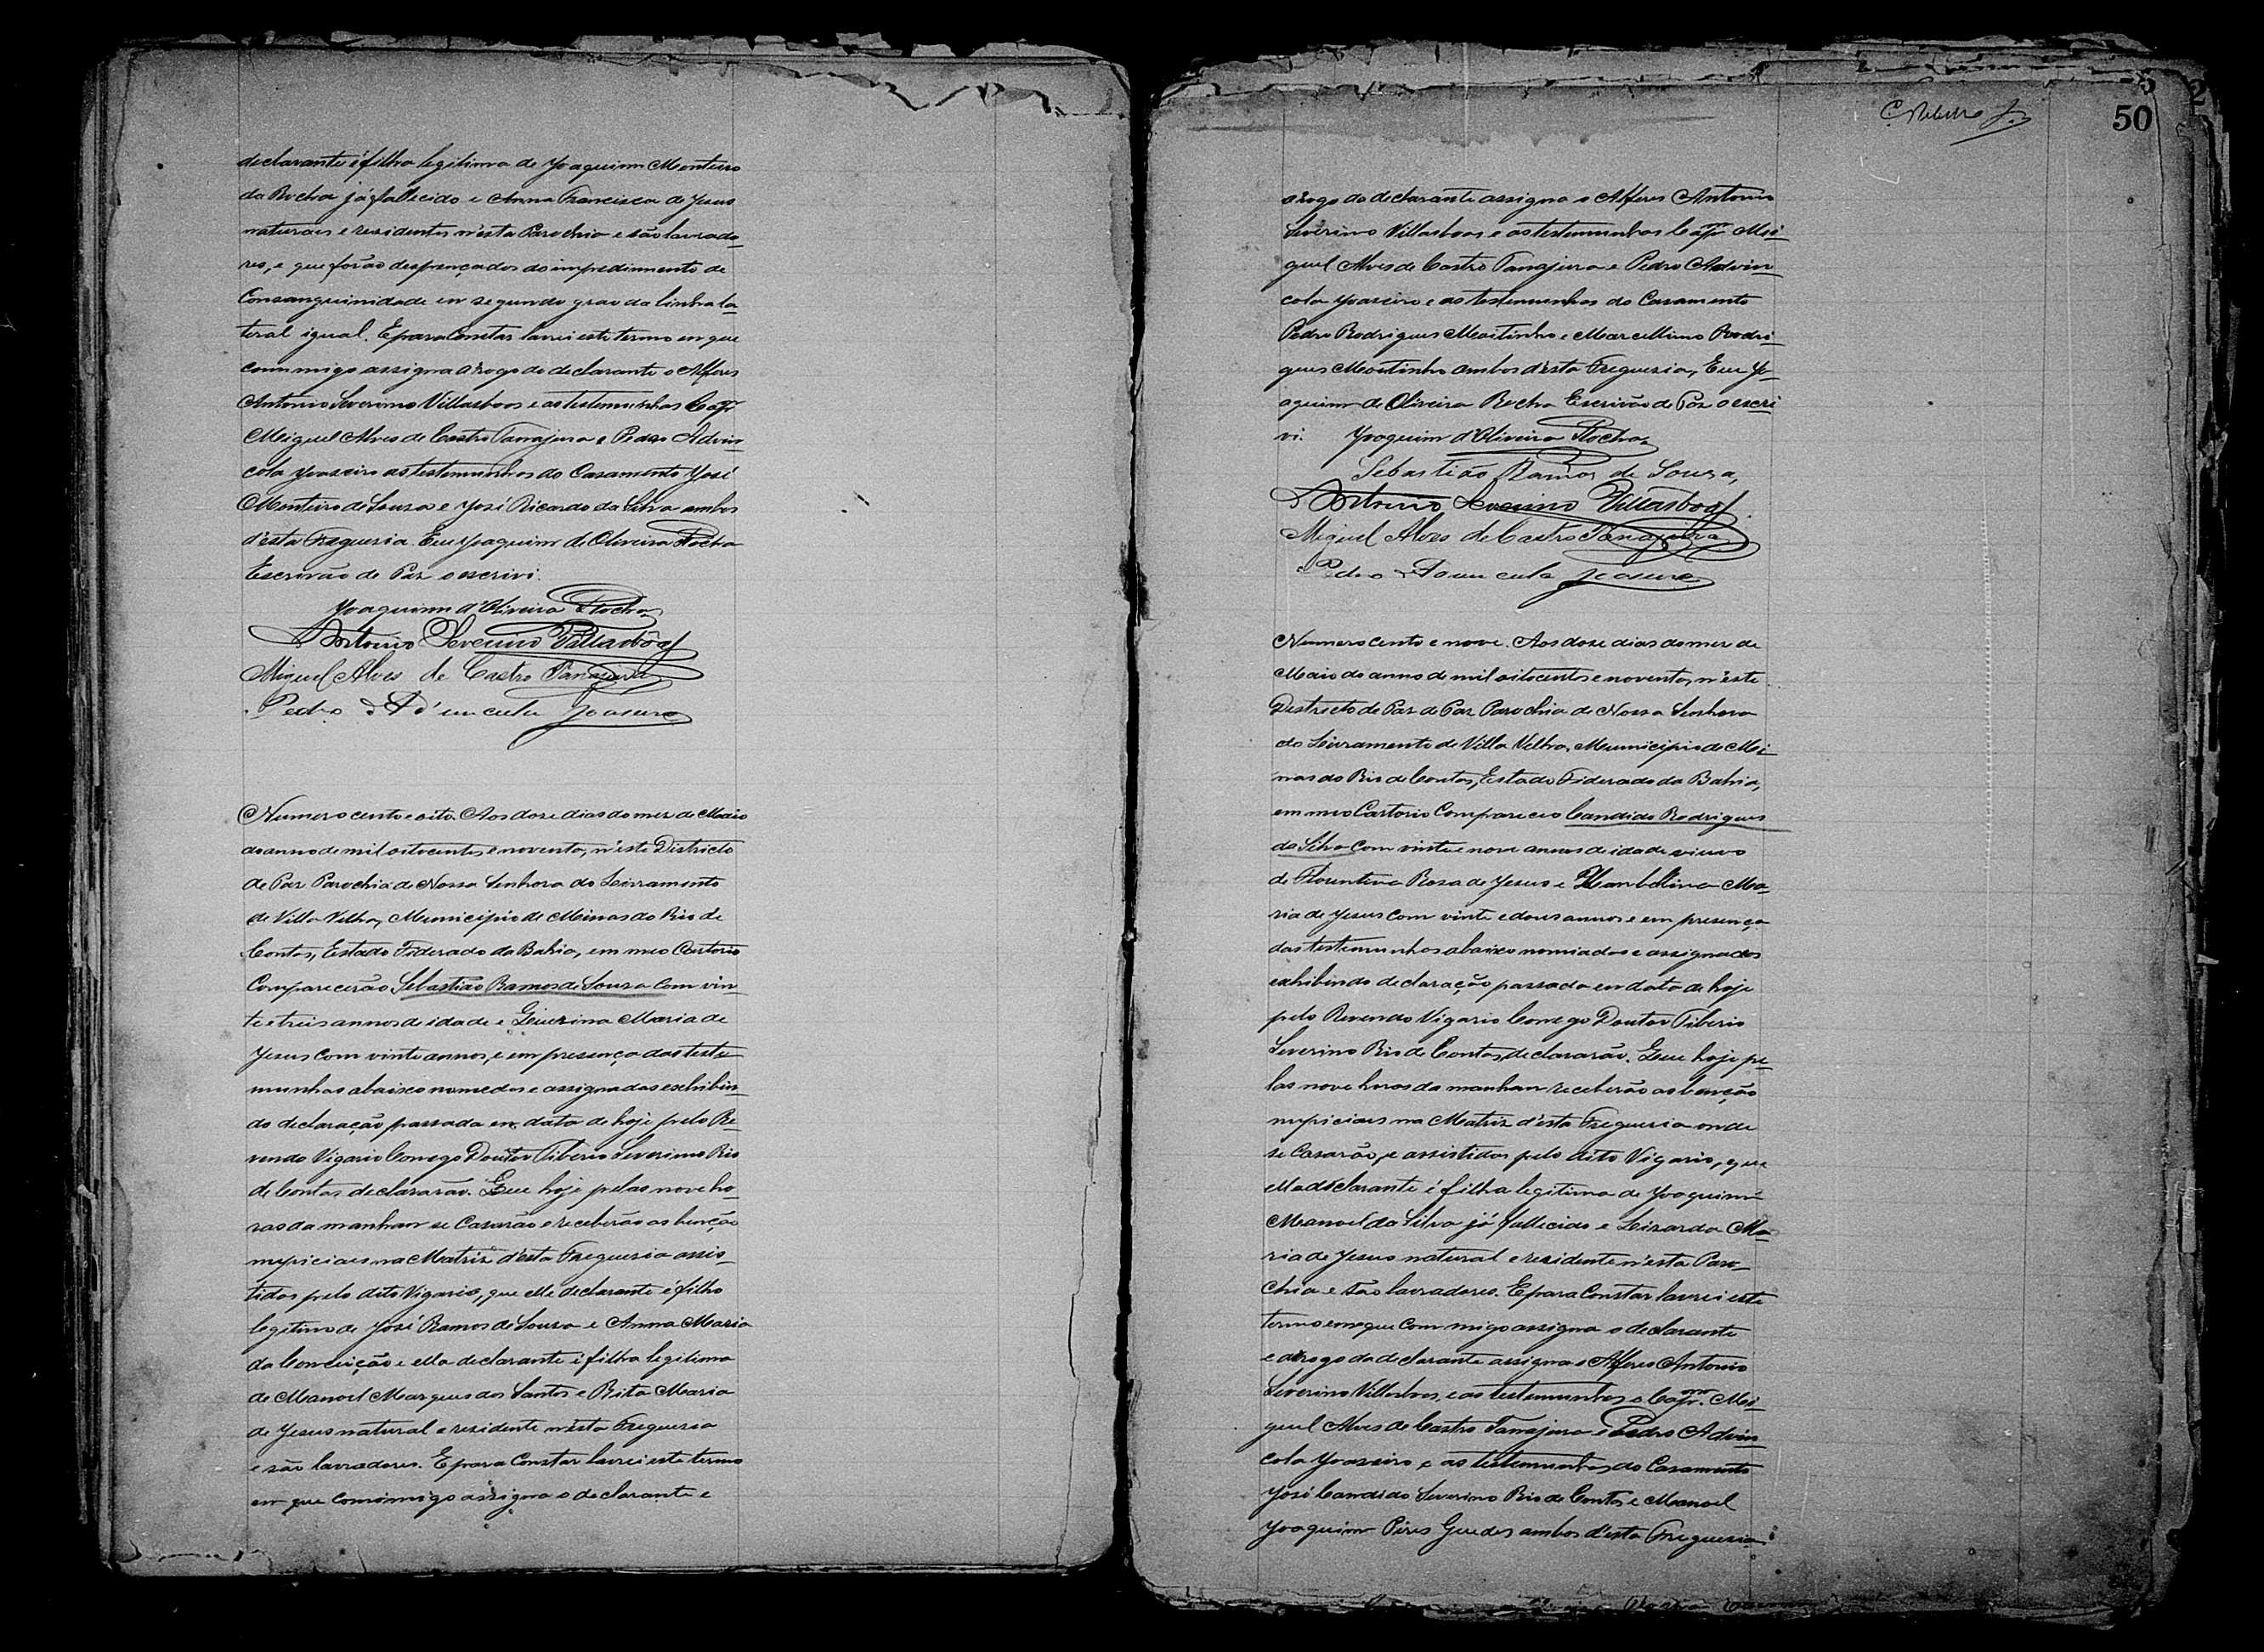 declarante é filha legitima de Joaquim Monteiro
da Rocha já fallecido e Anna Francisca de Jesus
naturaes e residentes n'esta Parochia e são lavrado-
res, e que forão despençados do impedimento de
Consanguinidade em segundo grao da linha la-
teral igual. E para Constar lavrei este termo em que
commigo assigna a rogo do declarante o Alferes
Antonio Severino Villasboas e as testemunhas Capm
Miguel Alves de Castro Tanajura e Pedro Advin-
cola Joaseiro as testemunhas do Casamento José
Monteiro de Souza e José Ricardo da Silva ambos
d'esta Freguesia. Eu Joaquim de Oliveira Rocha
Escrivão de Paz o escrivi.
Joaquim d'Oliveira Rocha
Antonio Severino Villasbôas
Miguel Alves de Castro Tanajura
Pedro Ad'uncula Joaseiro
Numero cento e oito. Aos dose dias do mez de Maio
do anno de mil oitocentos e noventa, n'este Districto
de Paz Parochia de Nossa Senhora do Livramento
de Villa Velha, Municipio de Minas do Rio de
Contas, Estado Federado da Bahia, em meo Cartorio
Comparecerão Sebastião Ramos de Souza com vin-
te e treis annos de idade e Guerina Maria de
Jesus com vinte annos, e em presença das teste-
munhas abaixo nomeadas e assignadas exhibin-
do declaração passada em data de hoje pelo Re-
vendo Vigario Conego Doutor Tiberio Severino Rio
de Contas declararão. Que hoje pelas nove ho-
ras da manhan se Casarão e receberão as benção
nupiciaes na Matriz d'esta Freguesia assis-
tidos pelo dito Vigario, que elle declarante é filho
legitimo de José Ramos de Souza e Anna Maria
da Conceição e ella declarante é filha legitima
de Manoel Marques dos Santos e Rita Maria
de Jesus natural e residente n'esta Freguesia
e são lavradores. E para Constar lavrei este termo
em que commigo assigna o declarante e
50
a rogo da declarante assigna o Alferes Antonio
Severino Villasboas e as testemunhas Capm Mi-
guel Alves de Castro Tanajura e Pedro Advin-
cola Joaseiro e as testemunhas do Casamento
Pedro Rodrigues Moitinho e Marcellino Rodri-
gues Moitinho ambos d'esta Freguesia, Eu Jo-
aquim de Oliveira Rocha Escrivão de Paz o escri-
vi. Joaquim d'Oliveira Rocha
Sebastião Ramos de Sousa,
Antonio Severino Villasboas
Miguel Alves de Castro Tanajura
Pedro Aduncula Joaseiro
Numero cento e nove. Aos dose dias do mez de
Maio do anno de mil oitocentos e noventa, n'este
Districto de Paz de Paz Parochia de Nossa Senhora
do Livramento de Villa Velha, Municipio de Mi-
nas do Rio de Contas, Estado Federado da Bahia,
em meo Cartorio Compareceo Candido Rodrigues
da Silva com vinte e nove annos de idade viuvo
de Florentina Rosa de Jesus e Humbelina Ma-
ria de Jesus com vinte e dous annos e em presença
das testemunhas abaixo nomiadas e assignados
exhibindo declaração passada em data de hoje
pelo Revendo Vigario Conego Doutor Tiberio
Severino Rio de Contas, declararão. Que hoje pe-
las nove horas da manhan receberão as benção
nupiciaes na Matriz d'esta Freguesia onde
se Casarão, e assistidos pelo dito Vigario, que
ella declarante é filha legitima de Joaquim
Manoel da Silva já fallecido e Lizarda Ma-
ria de Jesus natural e residente n'esta Paro-
chia e são lavradores. E para Constar lavrei este
termo em que com migo assigna o declarante
e a rogo da declarante assigna o Alferes Antonio
Severino Villasboas, e as testemunhas o Capm. Mi-
guel Alves de Castro Tanajura e Pedro Advin-
cola Joaseiro e as testemunhas do Casamento
José Candido Severino Rio de Contas e Manoel
Joaquim Pires Guedes ambos d'esta Freguesia